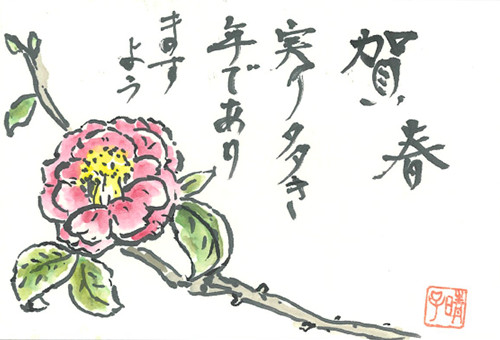 賀春
実り多き
年であり
ます
よう
晴子